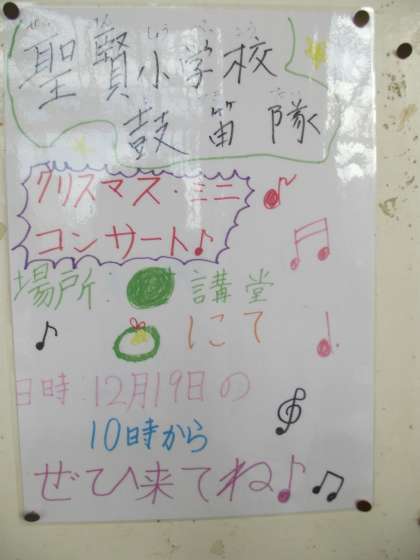 聖賢小学校
鼓笛隊
クリスマス・ミニ
コンサート♪
場所: 講堂
にて
日時:12月19日の
10時から
ぜひ来てね♪